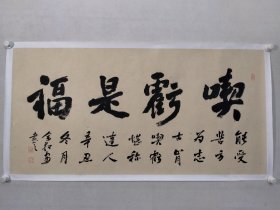 喫虧是福
能受
苦方
为志
士肯
喫虧
堪称
達人
辛丑
冬月